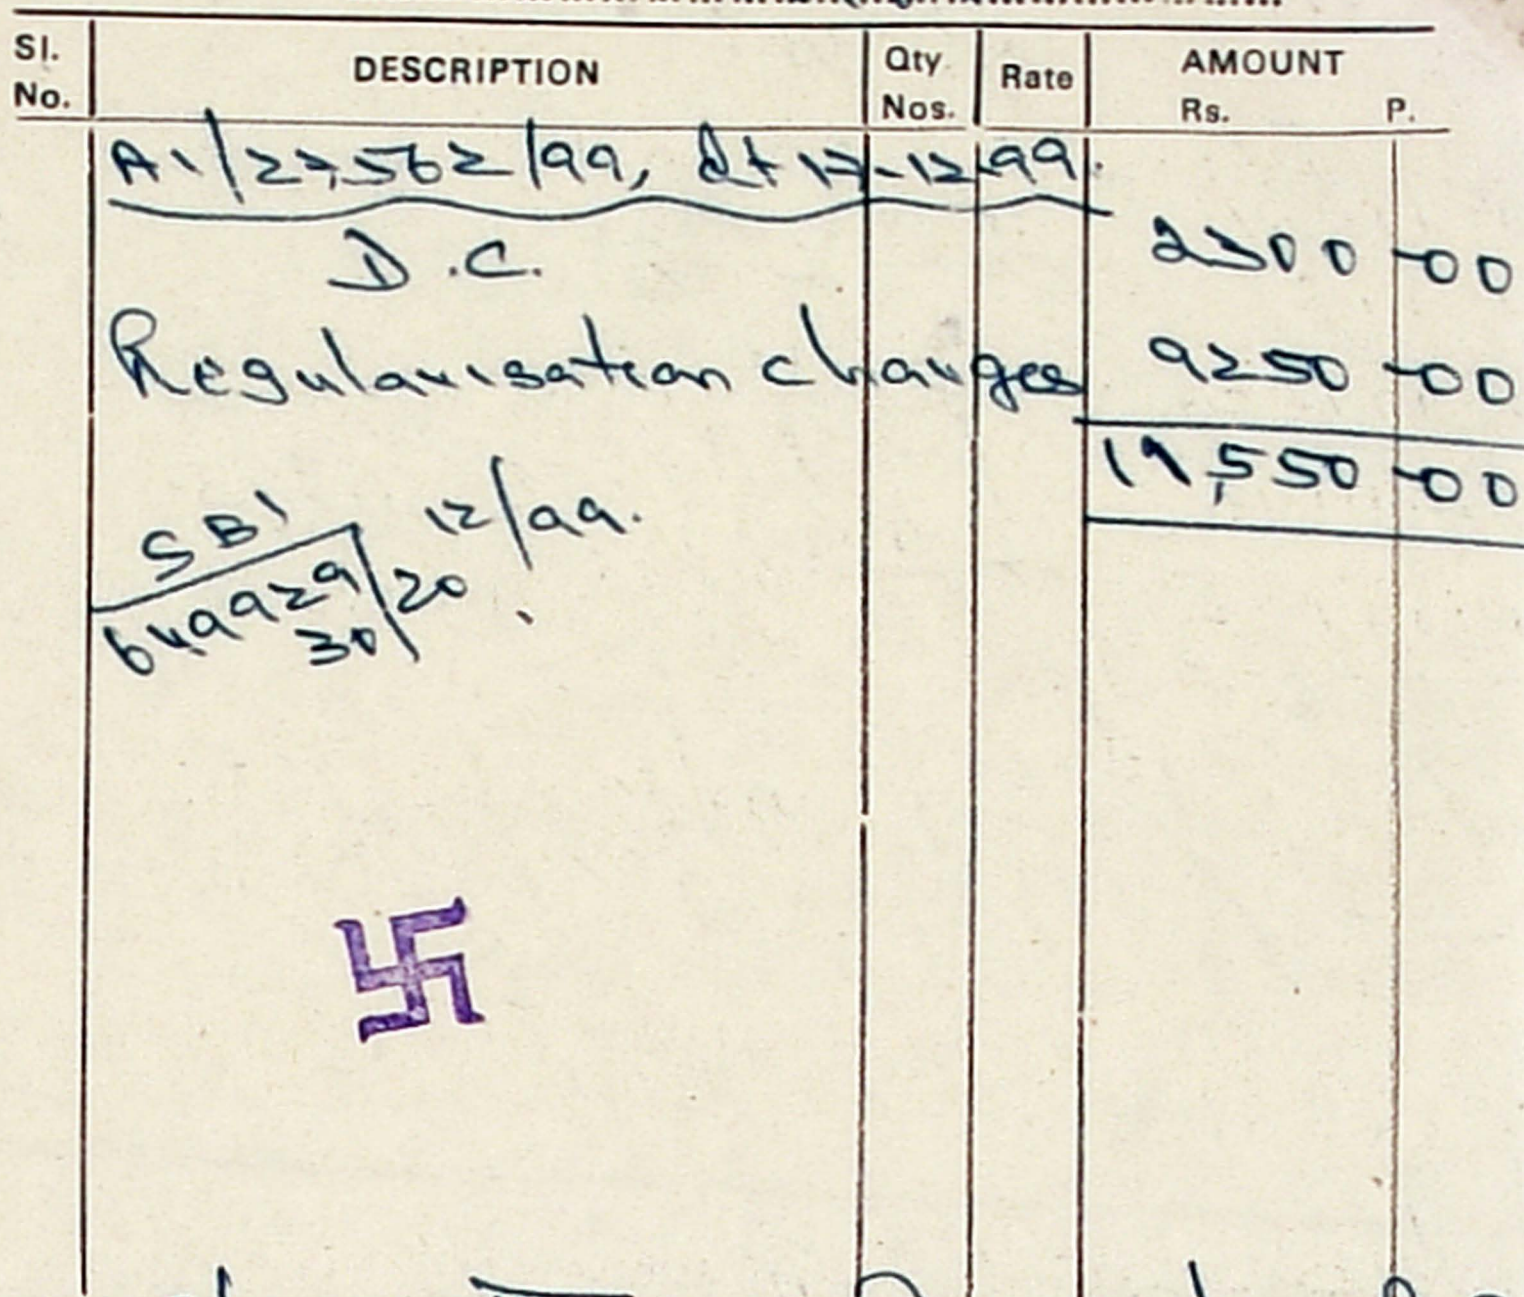 Sl. No. DESCRIPTION Qty Nos. Rate AMOUNT Rs. P.
A1/27562/99, dt 17-12-99.
D.C. 2300-00
Regularisation charges 9250-00
11,550-00
SBI
649929/20 12/99.
30